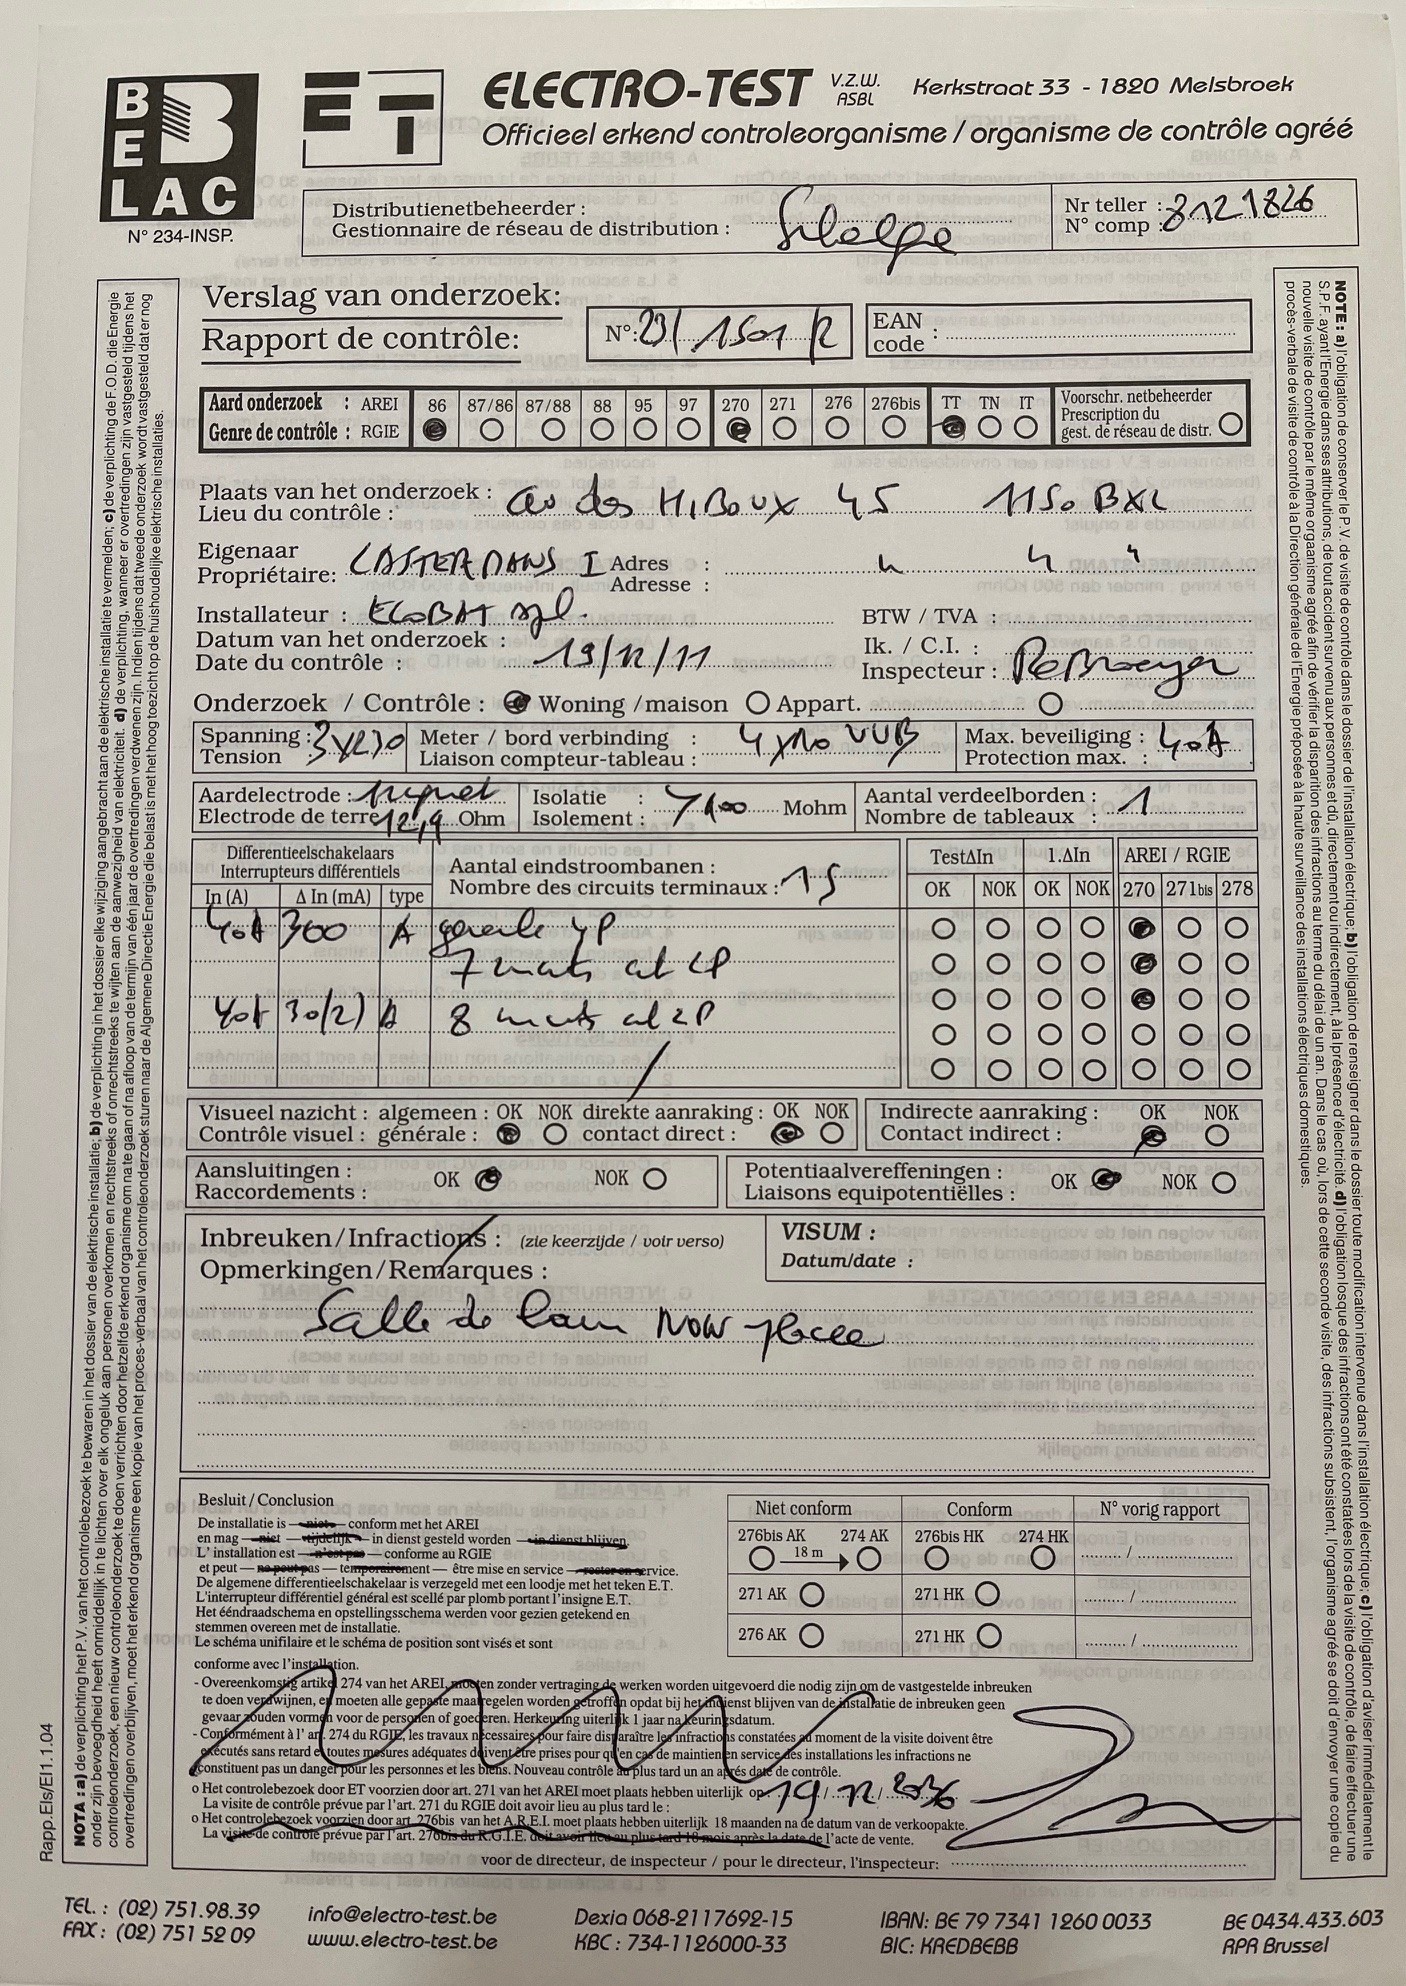 BELAC
N° 234-INSP.
ET
ELECTRO-TEST V.Z.W. ASBL Kerkstraat 33 - 1820 Melsbroek
Officieel erkend controleorganisme / organisme de contrôle agréé
Distributienetbeheerder :
Gestionnaire de réseau de distribution : Sibelga
Nr teller : 3121826
N° comp :
Verslag van onderzoek:
Rapport de contrôle:
N°: 29/1501/2
EAN code :
Aard onderzoek : AREI 86 87/86 87/88 88 95 97 270 271 276 276bis TT TN IT
Genre de contrôle : RGIE
Voorschr. netbeheerder
Prescription du
gest. de réseau de distr.
Plaats van het onderzoek :
Lieu du contrôle : av des HIBOUX 45 1150 BXL
Eigenaar
Propriétaire: CASTERMANS I
Adres :
Adresse : " " "
Installateur : ECOBAT sprl.
BTW / TVA :
Datum van het onderzoek :
Date du contrôle : 19/12/11
Ik. / C.I. :
Inspecteur : De Broeyer
Onderzoek / Contrôle : Woning / maison Appart.
Spanning : 3x230
Tension
Meter / bord verbinding :
Liaison compteur-tableau : 4x10 VVB
Max. beveiliging :
Protection max. : 40A
Aardelectrode : piquet
Electrode de terre 12,9 Ohm
Isolatie :
Isolement : >100 Mohm
Aantal verdeelborden :
Nombre de tableaux : 1
Differentieelschakelaars
Interrupteurs différentiels
In (A) Δ In (mA) type
Aantal eindstroombanen :
Nombre des circuits terminaux : 15
TestΔIn 1.ΔIn AREI / RGIE
OK NOK OK NOK 270 271bis 278
40A 300 A generale 4P
7 2P
40A 30(2) A 8 2P
Visueel nazicht : algemeen : OK NOK direkte aanraking : OK NOK
Contrôle visuel : générale : contact direct :
Indirecte aanraking : OK NOK
Contact indirect :
Aansluitingen :
Raccordements : OK NOK
Potentiaalvereffeningen :
Liaisons equipotentièlles : OK NOK
Inbreuken/Infractions : (zie keerzijde / voir verso)
Opmerkingen/Remarques :
VISUM :
Datum/date :
Salle de bain NON placée
Besluit / Conclusion
De installatie is — niet — conform met het AREI
en mag — niet — tijdelijk — in dienst gesteld worden — in dienst blijven.
L' installation est — n'est pas — conforme au RGIE
et peut — ne peut pas — temporairement — être mise en service — rester en service.
De algemene differentieelschakelaar is verzegeld met een loodje met het teken E.T.
L'interrupteur différentiel général est scellé par plomb portant l'insigne E.T.
Het ééndraadschema en opstellingsschema werden voor gezien getekend en
stemmen overeen met de installatie.
Le schéma unifilaire et le schéma de position sont visés et sont
conforme avec l'installation.
Niet conform Conform N° vorig rapport
276bis AK 274 AK 276bis HK 274 HK
18 m
/
271 AK 271 HK /
276 AK 271 HK /
- Overeenkomstig artikel 274 van het AREI, moeten zonder vertraging de werken worden uitgevoerd die nodig zijn om de vastgestelde inbreuken
te doen verdwijnen, en moeten alle gepaste maatregelen worden getroffen opdat bij het indienst blijven van de installatie de inbreuken geen
gevaar zouden vormen voor de personen of goederen. Herkeuring uiterlijk 1 jaar na keuringsdatum.
- Conformément à l' art. 274 du RGIE, les travaux nécessaires pour faire disparaître les infractions constatées au moment de la visite doivent être
exécutés sans retard et toutes mesures adéquates doivent être prises pour qu'en cas de maintien en service des installations les infractions ne
constituent pas un danger pour les personnes et les biens. Nouveau contrôle au plus tard un an aprés date de contrôle.
o Het controlebezoek door ET voorzien door art. 271 van het AREI moet plaats hebben uiterlijk op: 19/12/2036
La visite de contrôle prévue par l'art. 271 du RGIE doit avoir lieu au plus tard le :
o Het controlebezoek voorzien door art. 276bis van het A.R.E.I. moet plaats hebben uiterlijk 18 maanden na de datum van de verkoopakte.
La visite de contrôle prévue par l'art. 276bis du R.G.I.E. doit avoir lieu au plus tard 18 mois après la date de l'acte de vente.
voor de directeur, de inspecteur / pour le directeur, l'inspecteur:
NOTA : a) de verplichting het P.V. van het controlebezoek te bewaren in het dossier van de elektrische installatie; b) de verplichting in het dossier elke wijziging aangebracht aan de elektrische installatie te vermelden; c) de verplichting de F.O.D. die Energie
onder zijn bevoegdheid heeft onmiddelijk in te lichten over elk ongeluk aan personen overkomen en rechtstreeks of onrechtstreeks te wijten aan de aanwezigheid van elektriciteit. d) de verplichting, wanneer er overtredingen zijn vastgesteld tijdens het
controleonderzoek, een nieuw controleonderzoek te doen verrichten door hetzelfde erkend organisme om na te gaan of na afloop van de termijn van één jaar de overtredingen verdwenen zijn. Indien tijdens dat tweede onderzoek wordt vastgesteld dat er nog
overtredingen overblijven, moet het erkend organisme een kopie van het proces-verbaal van het controleonderzoek sturen naar de Algemene Directie Energie die belast is met het hoog toezicht op de huishoudelijke elektrische installaties.
NOTE : a) l'obligation de conserver le P.V. de visite de contrôle dans le dossier de l'installation électrique; b) l'obligation de renseigner dans le dossier toute modification intervenue dans l'installation électrique; c) l'obligation d'aviser immédiatement le
S.P.F. ayant l'Energie dans ses attributions, de tout accident survenu aux personnes et dû, directement ou indirectement, à la présence d'électricité. d) l'obligation losque des infractions ont été constatées lors de la visite de contrôle, de faire effectuer une
nouvelle visite de contrôle par le même organisme agréé afin de vérifier la disparition des infractions au terme du délai de un an. Dans le cas où, lors de cette seconde visite, des infractions subsistent, l'organisme agréé se doit d'envoyer une copie du
procès-verbale de visite de contrôle à la Direction générale de l'Energie préposée à la haute surveillance des installations électriques domestiques.
Rapp.Els/El1.1.04
TEL. : (02) 751.98.39 info@electro-test.be Dexia 068-2117692-15 IBAN: BE 79 7341 1260 0033 BE 0434.433.603
FAX : (02) 751 52 09 www.electro-test.be KBC : 734-1126000-33 BIC: KREDBEBB RPR Brussel